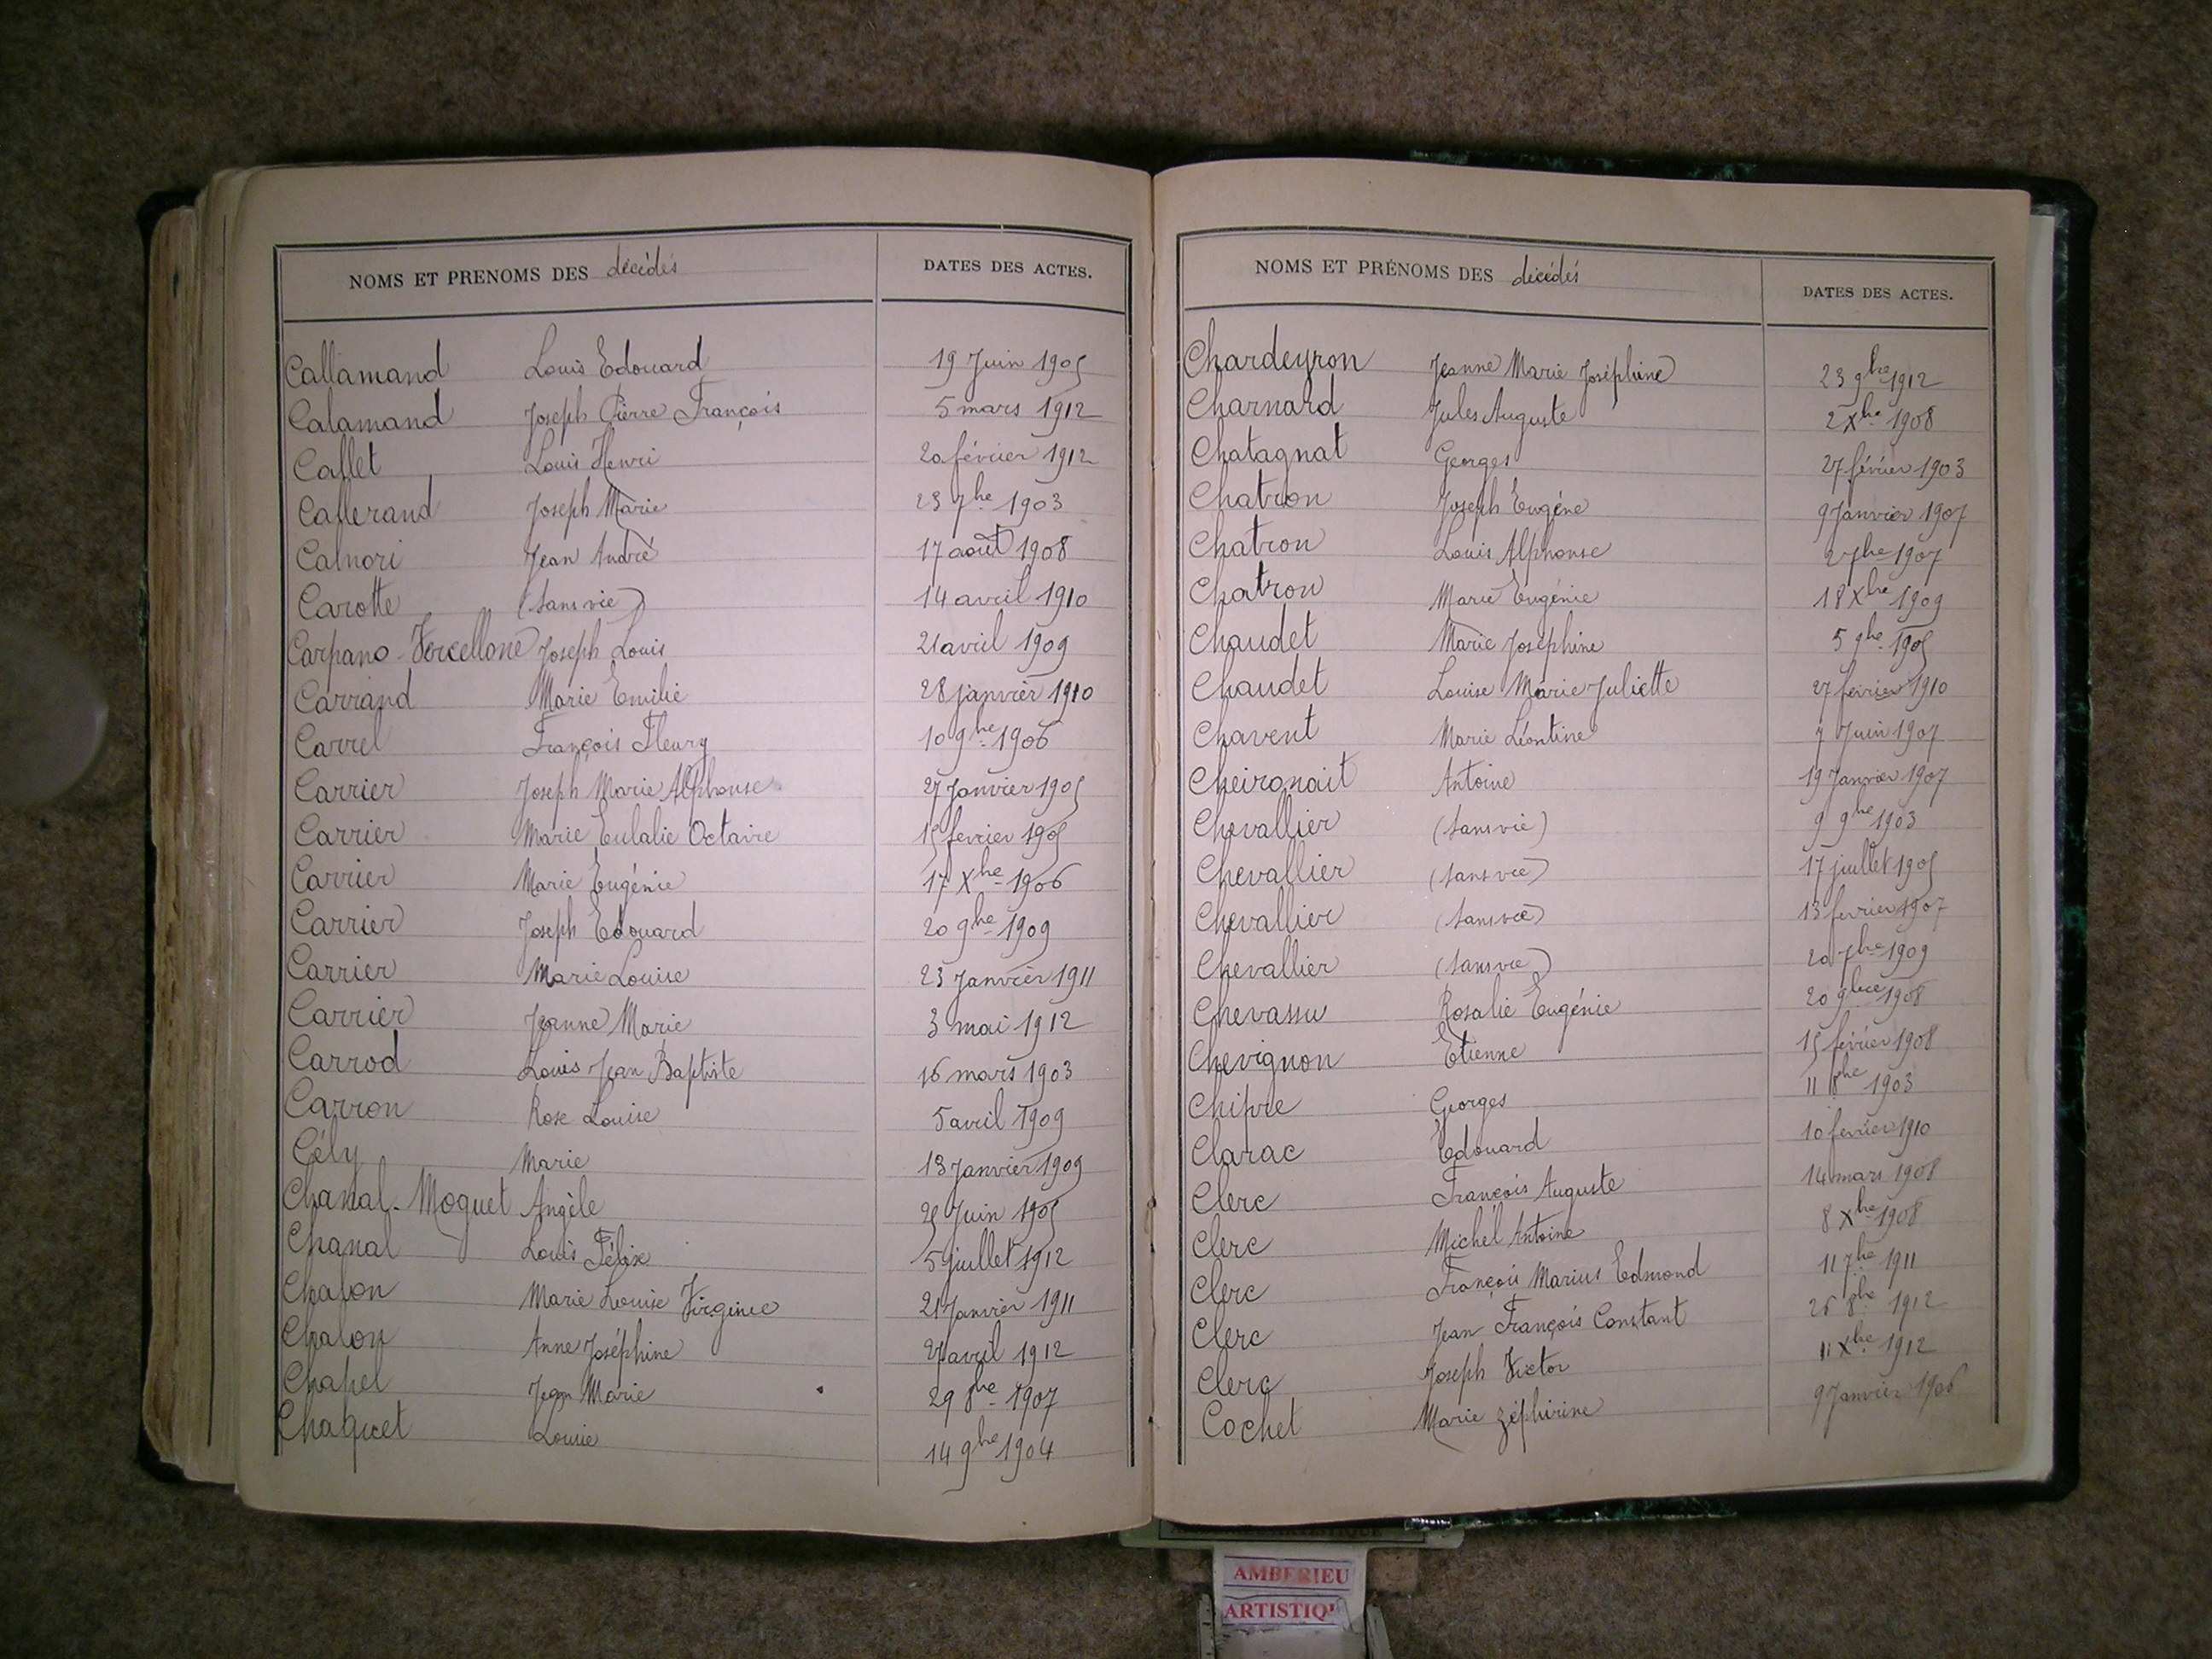 NOMS ET PRENOMS DES décédés DATES DES ACTES.
Callamand Louis Edouard 19 Juin 1905
Calamand Joseph Pierre François 5 mars 1912
Callet Louis Henri 20 février 1912
Callerand Joseph Marie 23 7bre 1903
Calnori Jean André 17 août 1908
Carotte (sans vie) 14 avril 1910
Carpano-Vercellone Joseph Louis 21 avril 1909
Carrand Marie Emilie 28 janvier 1910
Carrel François Fleury 10 9bre 1906
Carrier Joseph Marie Alphonse 27 Janvier 1905
Carrier Marie Eulalie Octavie 15 fevrier 1905
Carrier Marie Eugénie 17 Xbre 1906
Carrier Joseph Edouard 20 9bre 1909
Carrier Marie Louise 23 Janvier 1911
Carrier Jeanne Marie 3 mai 1912
Carrod Louis Jean Baptiste 16 mars 1903
Carron Rose Louise 5 avril 1909
Cély Marie 13 Janvier 1909
Chanal-Moguet Angèle 25 Juin 1905
Chanal Louis Félix 5 juillet 1912
Chalon Marie Louise Virginie 21 Janvier 1911
Chalon Anne Joséphine 27 avril 1912
Chapel Jean Marie 29 8bre 1907
Chaquet Louise 14 9bre 1904
NOMS ET PRÉNOMS DES décédés DATES DES ACTES.
Chardeyron Jeanne Marie Joséphine 23 9bre 1912
Charnard Jules Auguste 2 Xbre 1908
Chatagnat Georges 27 février 1903
Chatron Joseph Eugéne 9 Janvier 1907
Chatron Louis Alphonse 2 7bre 1907
Chatron Marie Eugénie 18 Xbre 1909
Chaudet Marie Joséphine 5 9bre 1905
Chaudet Louise Marie Juliette 27 fevrier 1910
Chavent Marie Léontine 7 Juin 1907
Cheironait Antoine 19 Janvier 1907
Chevallier (sans vie) 9 9bre 1903
Chevallier (sans vie) 17 juillet 1905
Chevallier (sans vie) 13 fevrier 1907
Chevallier (sans vie) 20 7bre 1909
Chevassu Rosalie Eugénie 20 9bre 1908
Chevignon Etienne 15 février 1908
Chipre Georges 11 8bre 1903
Clarac Edouard 10 fevrier 1910
Clerc François Auguste 14 mars 1908
Clerc Michel Antoine 8 Xbre 1908
Clerc François Marius Edmond 11 7bre 1911
Clerc Jean François Constant 26 8bre 1912
Clerc Joseph Victor 11 Xbre 1912
Cochet Marie Zéphirine 9 Janvier 1906
AMBERIEU
ARTISTIQU